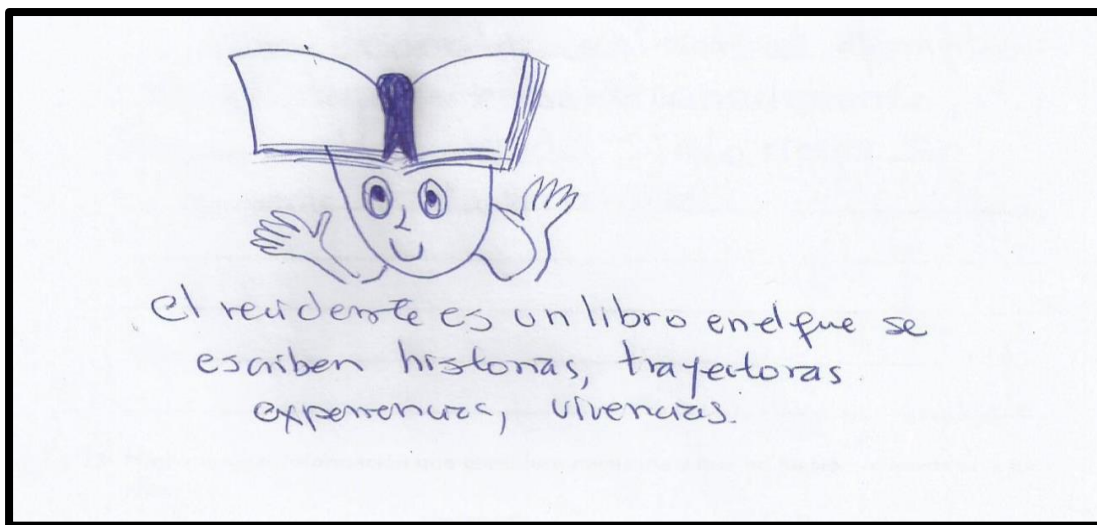 El residente es un libro en el que se
escriben historias, trayectoras
experiencias, vivencias.